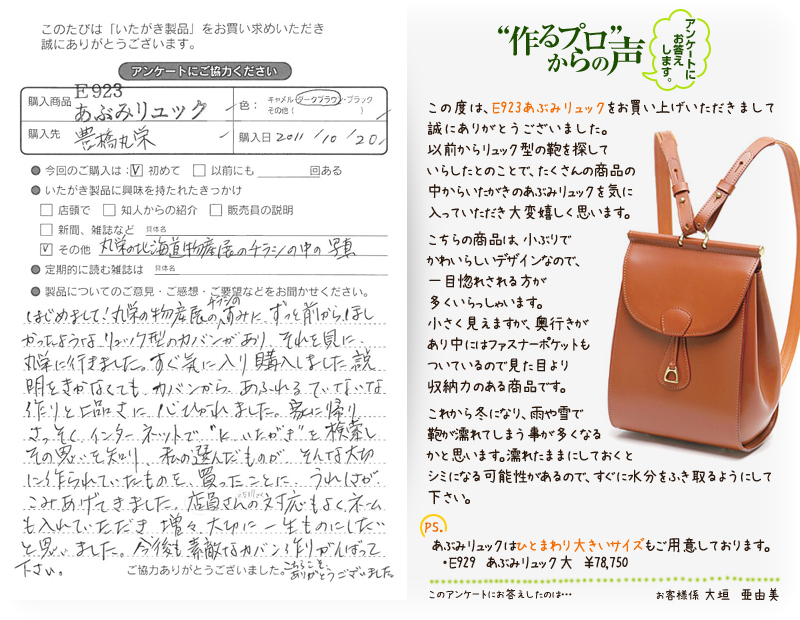 このたびは「いたがき製品」をお買い求めいただき
誠にありがとうございます。
アンケートにご協力ください
購入商品 E923 あぶみリュック 色: キャメル・ダークブラウン・ブラック
その他( )
購入先 豊橋丸栄 購入日 2011/10/20
今回のご購入は: V 初めて 以前にも 回ある
いたがき製品に興味を持たれたきっかけ
店頭で 知人からの紹介 販売員の説明
新聞、雑誌など 具体名
V その他 丸栄の北海道物産展のチラシの中の写真
定期的に読む雑誌は 具体名
製品についてのご意見・ご感想・ご要望などをお聞かせください。
はじめまして!丸栄の物産展のチラシのすみに、ずっと前からほし
かったようなリュック型のカバンがあり、それを見に、
丸栄に行きました。すぐ気に入り購入しました。説
明をきかなくても、カバンから、あふれるていないな
作りと上品さに、心ひかれました。家に帰り
さっそく、インターネットで"K.いたがき"を検索し
その思いを知り、私の選んだものが、そんな大切
に作られていたものを、買ったことに、うれしさが、
こみあげてきました。店員さんの対応もよく、ネーム
も入れていただき、増々、大切に一生ものにしたい
と思いました。今後も素敵なカバン作りがんばって
下さい。
ご協力ありがとうございました。
こちらこそ、
ありがとうございました。
アンケートに
お答え
します。
“作るプロ”
からの声
この度は、E923あぶみリュックをお買い上げいただきまして
誠にありがとうございました。
以前からリュック型の鞄を探して
いらしたとのことで、たくさんの商品の
中からいたがきのあぶみリュックを気に
入っていただき大変嬉しく思います。
こちらの商品は、小ぶりで
かわいらしいデザインなので、
一目惚れされる方が
多くいらっしゃいます。
小さく見えますが、奥行きが
あり中にはファスナーポケットも
ついているので見た目より
収納力のある商品です。
これから冬になり、雨や雪で
鞄が濡れてしまう事が多くなる
かと思います。濡れたままにしておくと
シミになる可能性があるので、すぐに水分をふき取るようにして
下さい。
PS.
あぶみリュックはひとまわり大きいサイズもご用意しております。
・E929 あぶみリュック大 ¥78,750
このアンケートにお答えしたのは… お客様係 大垣 亜由美